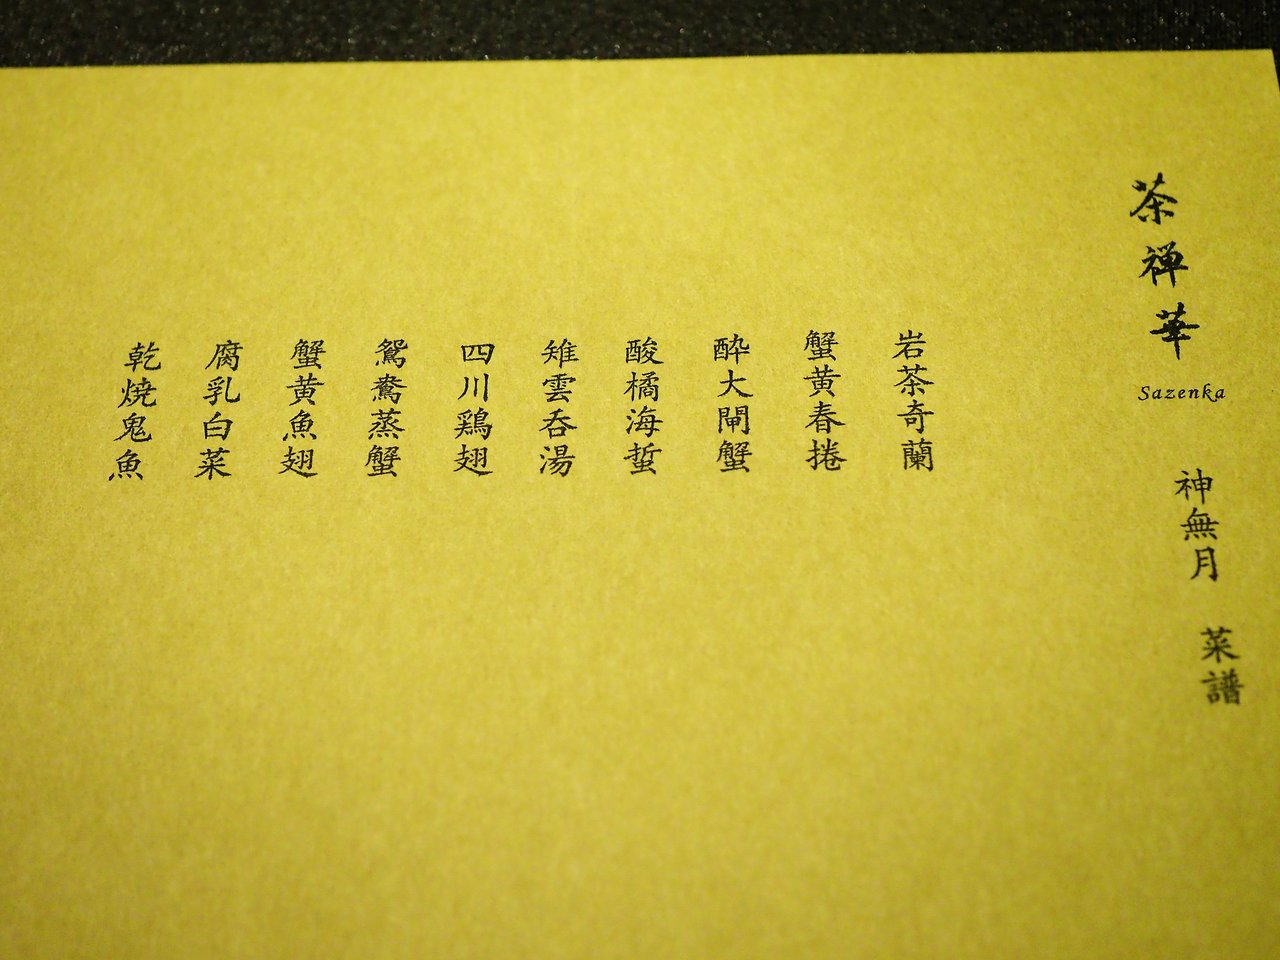 茶禅華
Sazenka
神無月 菜譜
岩茶奇蘭
蟹黄春捲
酔大閘蟹
酸橘海蜇
雉雲呑湯
四川鶏翅
鴛鴦蒸蟹
蟹黄魚翅
腐乳白菜
乾焼鬼魚